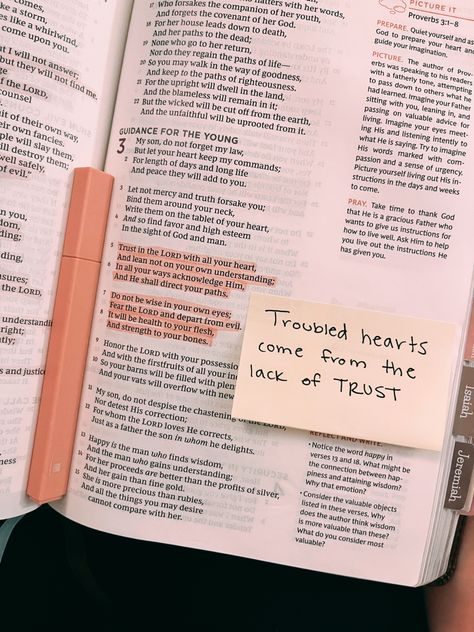 come upon you.
17 Who forsakes the companion of her youth,
And forgets the covenant of her God.
18 For her house leads down to death,
And her paths to the dead;
19 None who go to her return,
Nor do they regain the paths of life—
20 So you may walk in the way of goodness,
And keep to the paths of righteousness.
21 For the upright will dwell in the land,
And the blameless will remain in it;
22 But the wicked will be cut off from the earth,
And the unfaithful will be uprooted from it.
GUIDANCE FOR THE YOUNG
3 My son, do not forget my law,
But let your heart keep my commands;
2 For length of days and long life
And peace they will add to you.
3 Let not mercy and truth forsake you;
Bind them around your neck,
Write them on the tablet of your heart,
4 And so find favor and high esteem
In the sight of God and man.
5 Trust in the LORD with all your heart,
And lean not on your own understanding;
6 In all your ways acknowledge Him,
And He shall direct your paths.
7 Do not be wise in your own eyes;
Fear the LORD and depart from evil.
8 It will be health to your flesh,
And strength to your bones.
9 Honor the LORD with your possessio
And with the firstfruits of all your in
10 So your barns will be filled with plen
And your vats will overflow with new
11 My son, do not despise the chastening of
Nor detest His correction;
12 For whom the LORD loves He corrects,
Just as a father the son in whom he delights.
13 Happy is the man who finds wisdom,
And the man who gains understanding;
14 For her proceeds are better than the profits of silver,
And her gain than fine gold.
15 She is more precious than rubies,
And all the things you may desire
cannot compare with her.
PICTURE IT
Proverbs 3:1–8
PREPARE. Quiet yourself and as
God to prepare your heart and
guide your imagination.
PICTURE. The author of Prov-
erbs was speaking to his reader
with a fatherly tone, attempting
to pass down to others what he
had learned. Imagine your Father
sitting with you, leaning in, and
passing on valuable advice for
living. Imagine your eyes meet-
ing His and listening intently to
what He is saying. Try to imagine
His words marked with com-
passion and a sense of urgency.
Picture yourself living out His in-
structions in the days and weeks
to come.
PRAY. Take time to thank God
that He is a gracious Father who
wants to give us instructions for
how to live well. Ask Him to help
you live out the instructions He
has given you.
Troubled hearts
come from the
lack of TRUST
REFLECT AND WRITE.
• Notice the word happy in
verses 13 and 18. What might be
the connection between hap-
piness and attaining wisdom?
Why that emotion?
• Consider the valuable objects
listed in these verses. Why
does the author think wisdom
is more valuable than these?
What do you consider most
valuable?
Isaiah
Jeremiah